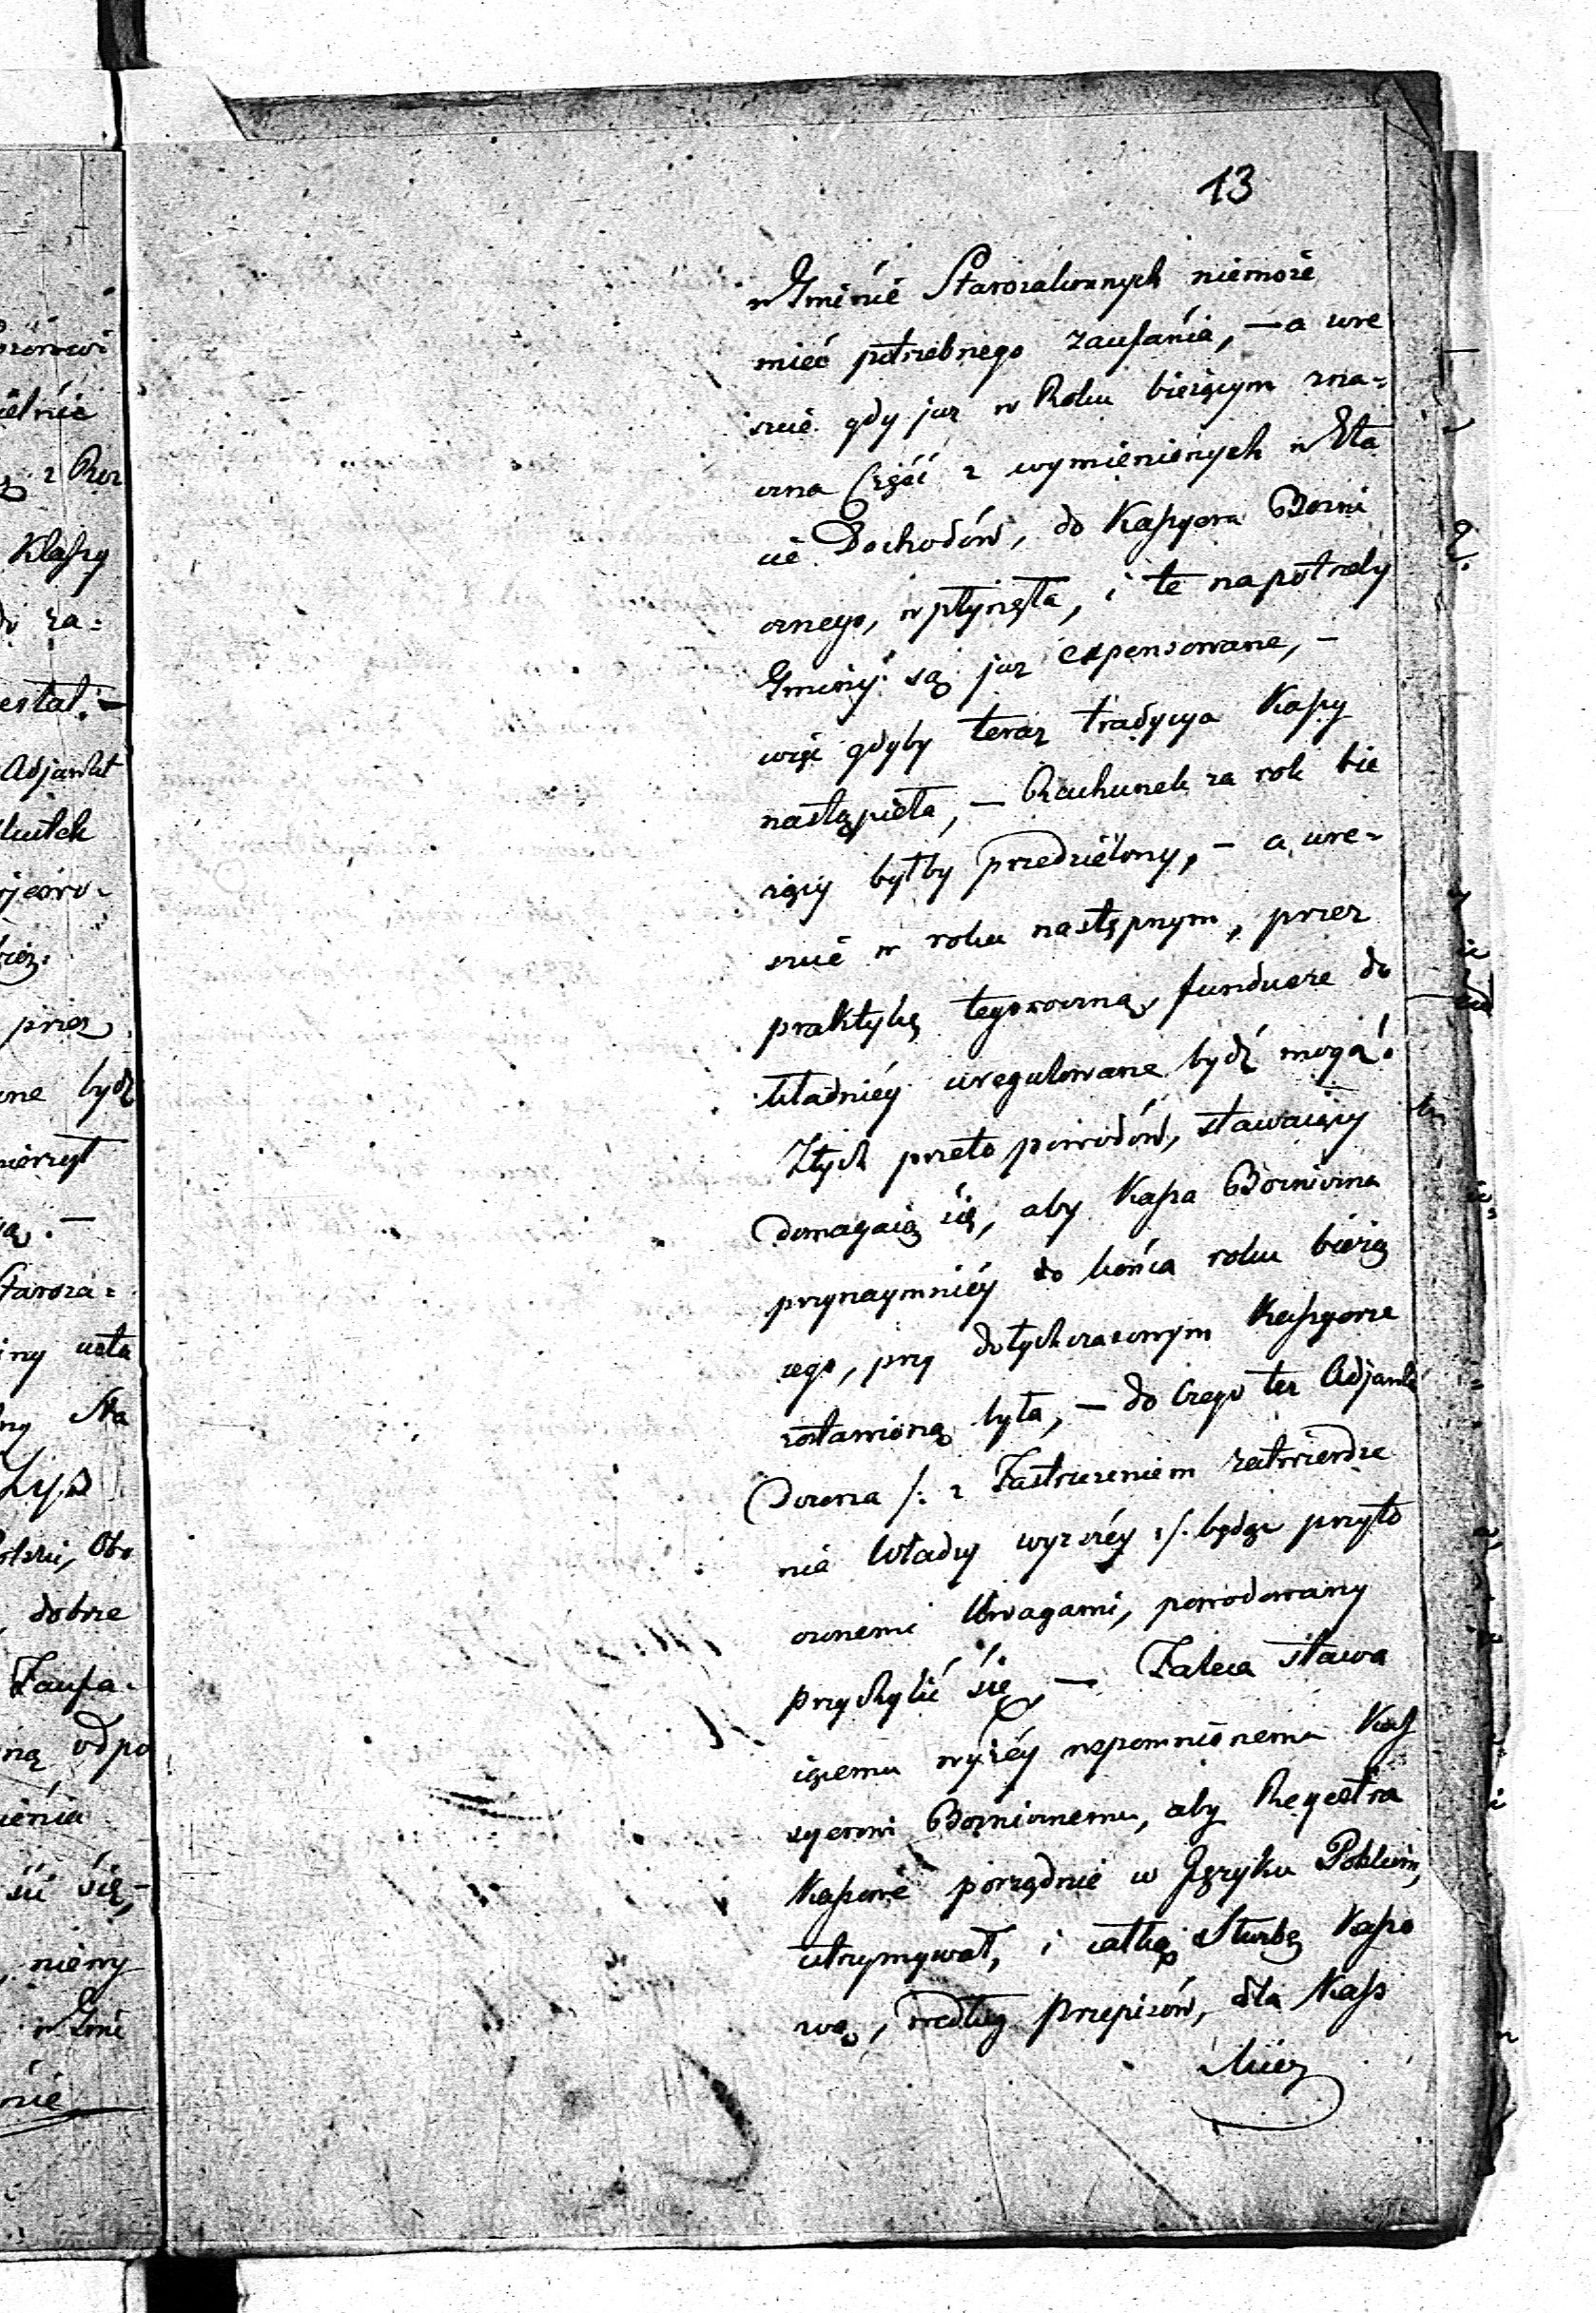 13
w Gminie Starozakonnych niemoże
mieć potrzebnego zaufania, — a wre
szcie gdy juz w Roku bieżącym zna=
czna Część z wymienionych w Eta
cie Dochodów, do Kassyera Bożni
cznego, wpłynęła, i te na potrzeby
Gminy są juz expensowane, —
więc gdyby teraz tradycya Kassy
nastąpiła, — Rachunek za rok bie
żący byłby przedzielony, — a wre=
szcie w roku następnym, przez
praktykę tegoroczną, fundusze do
kładniéy uregulowane bydź mogą.
Z tych przeto powodów, stawaiący
domagaią się, aby Kassa Bożniczna
przynaymniéy do końca roku bieżą
cego, przy dotychczasowym Kassyerze
zostawioną była, — do czego tez Adjunkt
Dozoru /: z Zastrzeżeniem zatwierdze
nia Władzy wyzszéy :/ będąc przyto
czonemi Uwagami, powodowany
przychylić się, — Zaleca stawa
iącemu wyżéy wspomnionemu Kas
syerowi Bożnicznemu, aby Regestra
Kassowe porządnie w Języku Polskim,
utrzymywał, i całką Służbę Kasso
wą, według przepisów, dla Kass
prioz
Klassy
za=
Adjunkt
przez
bydź
Staroza=
dobrze
Zaufa=
odpo
się,
w Gmi
nie